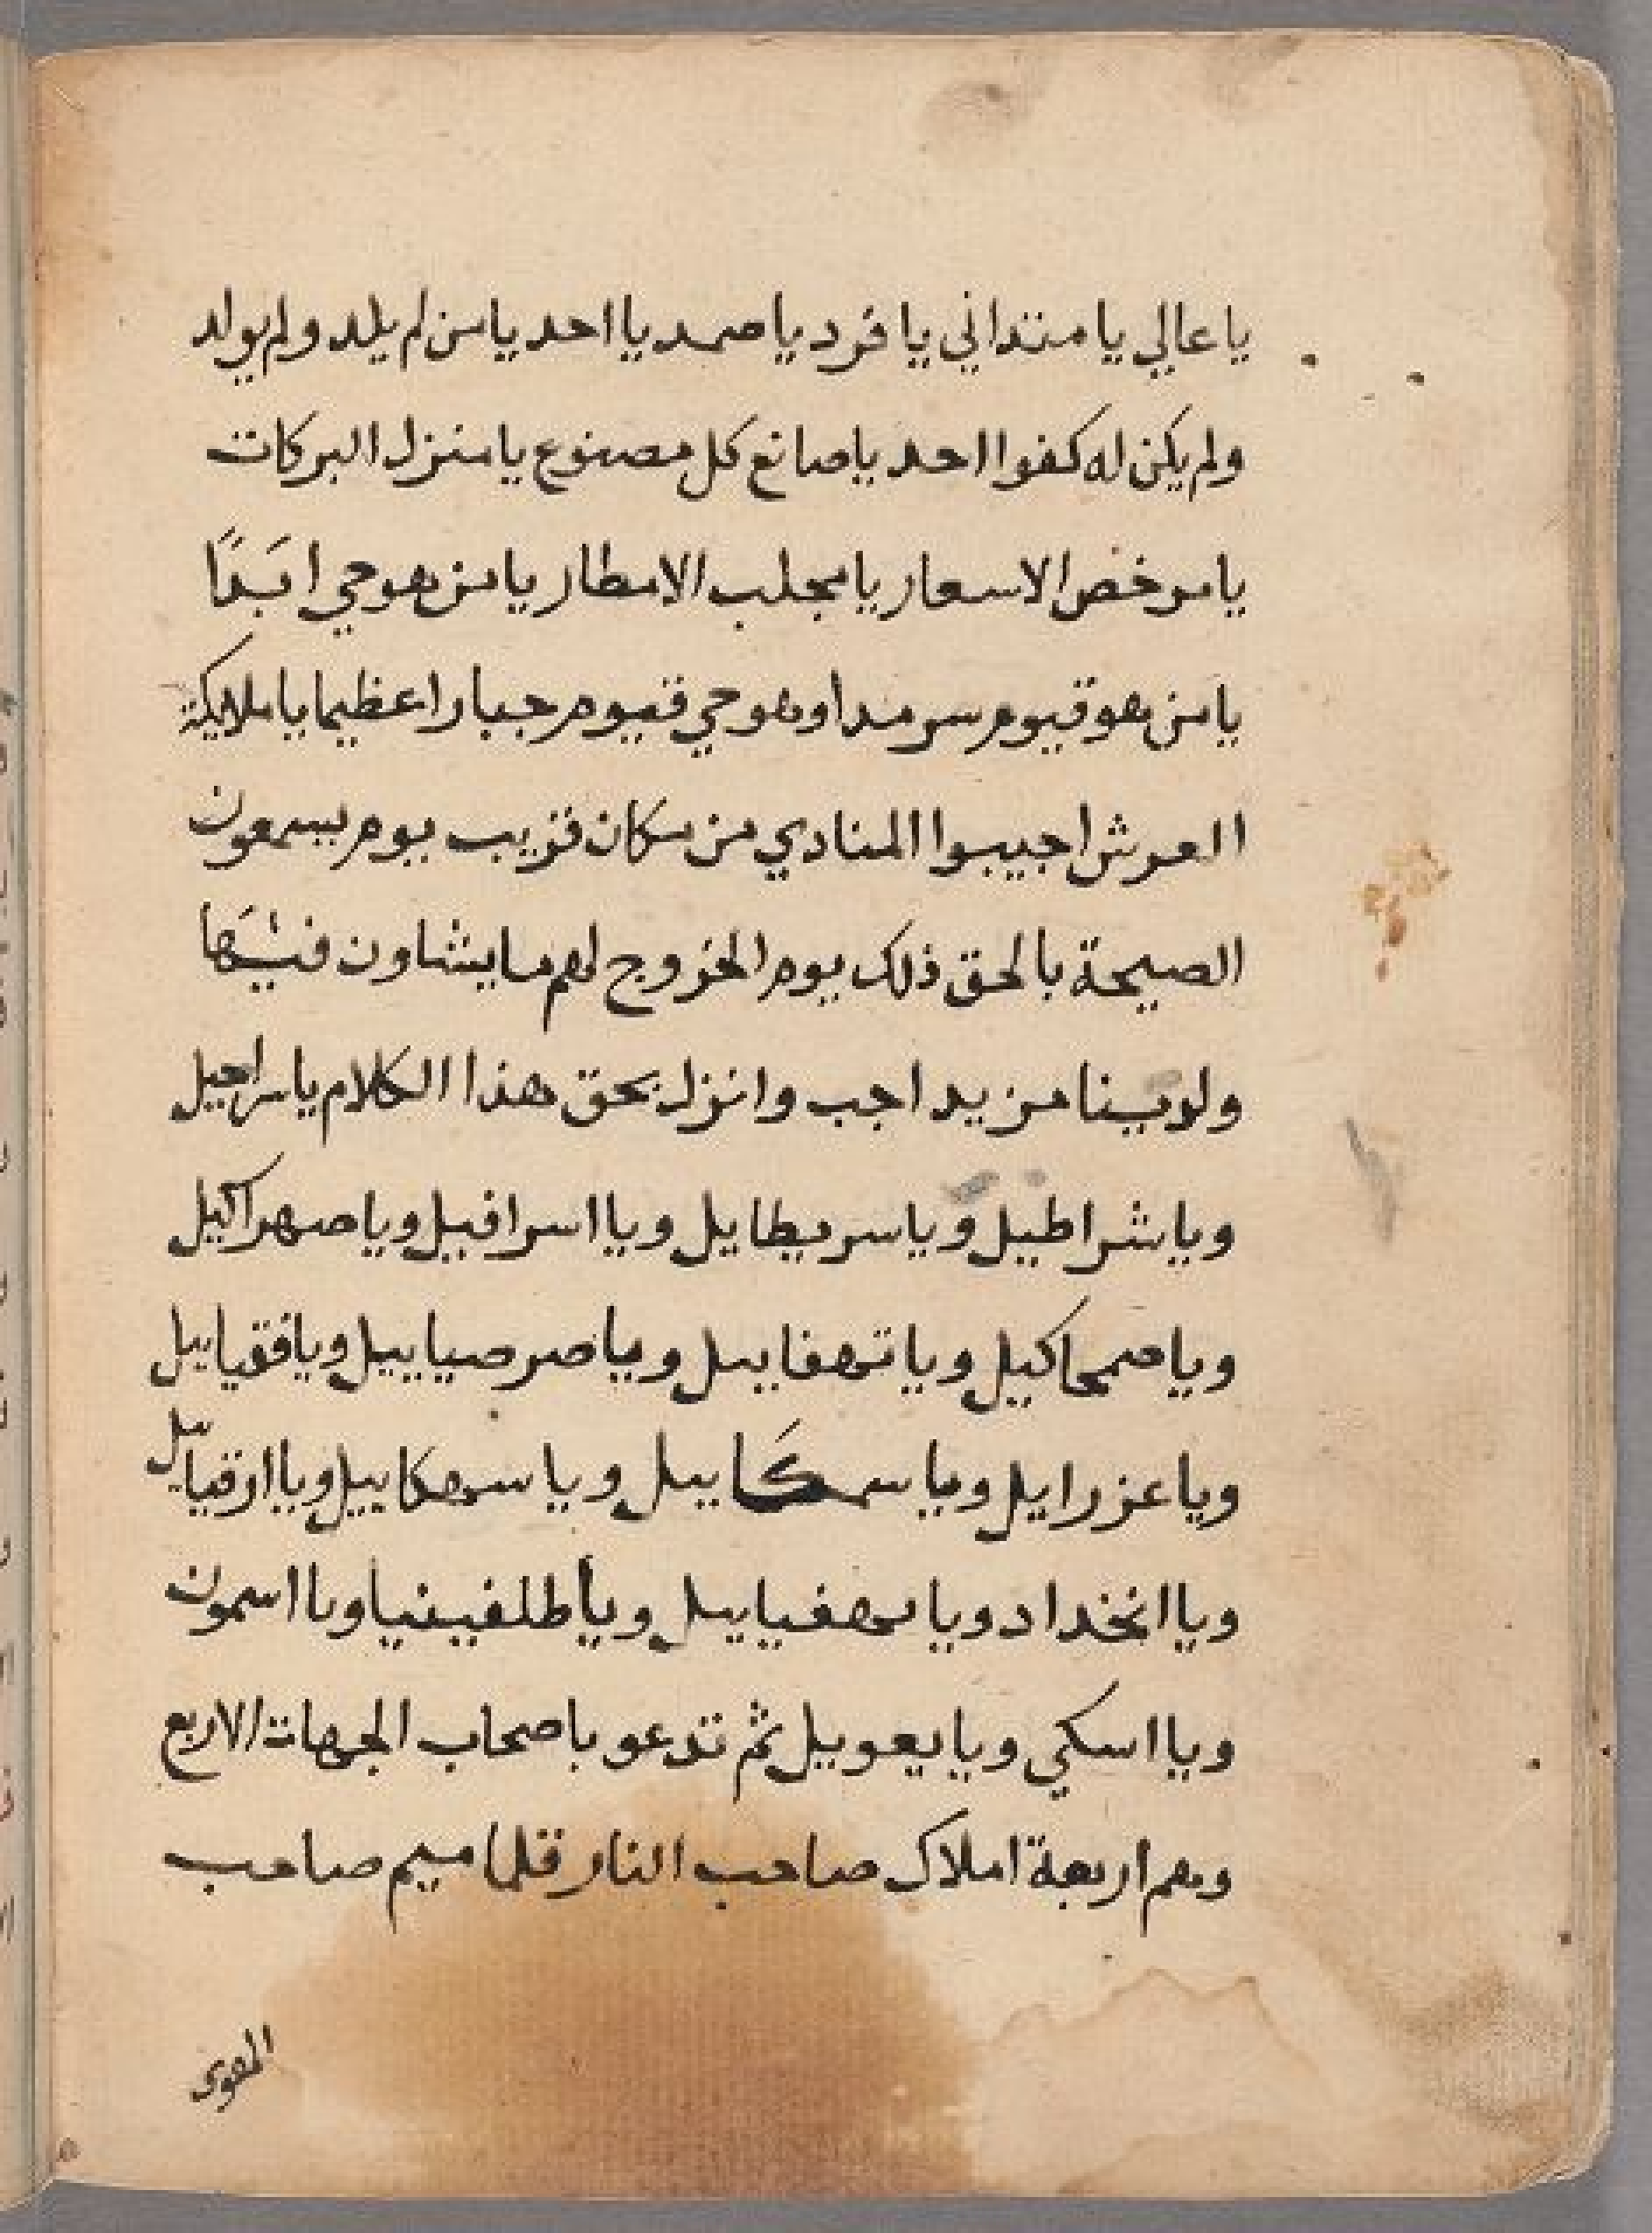 يا عالي يا متداني يا فرد يا صمد يا احد يا من لم يلد ولم يولد
ولم يكن له كفوا احد يا صانع كل مصنوع يا منزل البركات
يا مرخص الاسعار يا مجلب الامطار يا من هو حي ابَدًا
يا من هو قيوم سرمدا وهو حي قيوم جبارا عظيما يا ملايكة
العرش اجيبوا المنادي من مكان قريب يوم يسمعون
الصيحة بالحق ذلك يوم الخروج لهم ما يشاون فيها
ولدينا مزيد اجب وانزل بحق هذا الكلام يا سراجيل
ويا شراطيل ويا سريطايل ويا اسرافيل ويا صهراكيل
ويا صمحاكيل ويا تهفاييل ويا صرصياييل ويا فقياييل
ويا عزرايل ويا سمكَاييل ويا سهكاييل ويا ارقياييل
ويا انخداد ويا يهفياييل ويا طلفيينيا ويا اسمون
ويا اسكي ويا يعوييل ثم تدعو باصحاب الجهات الاربع
وهم اربعة املاك صاحب النار قلما ميم صاحب
الهوى